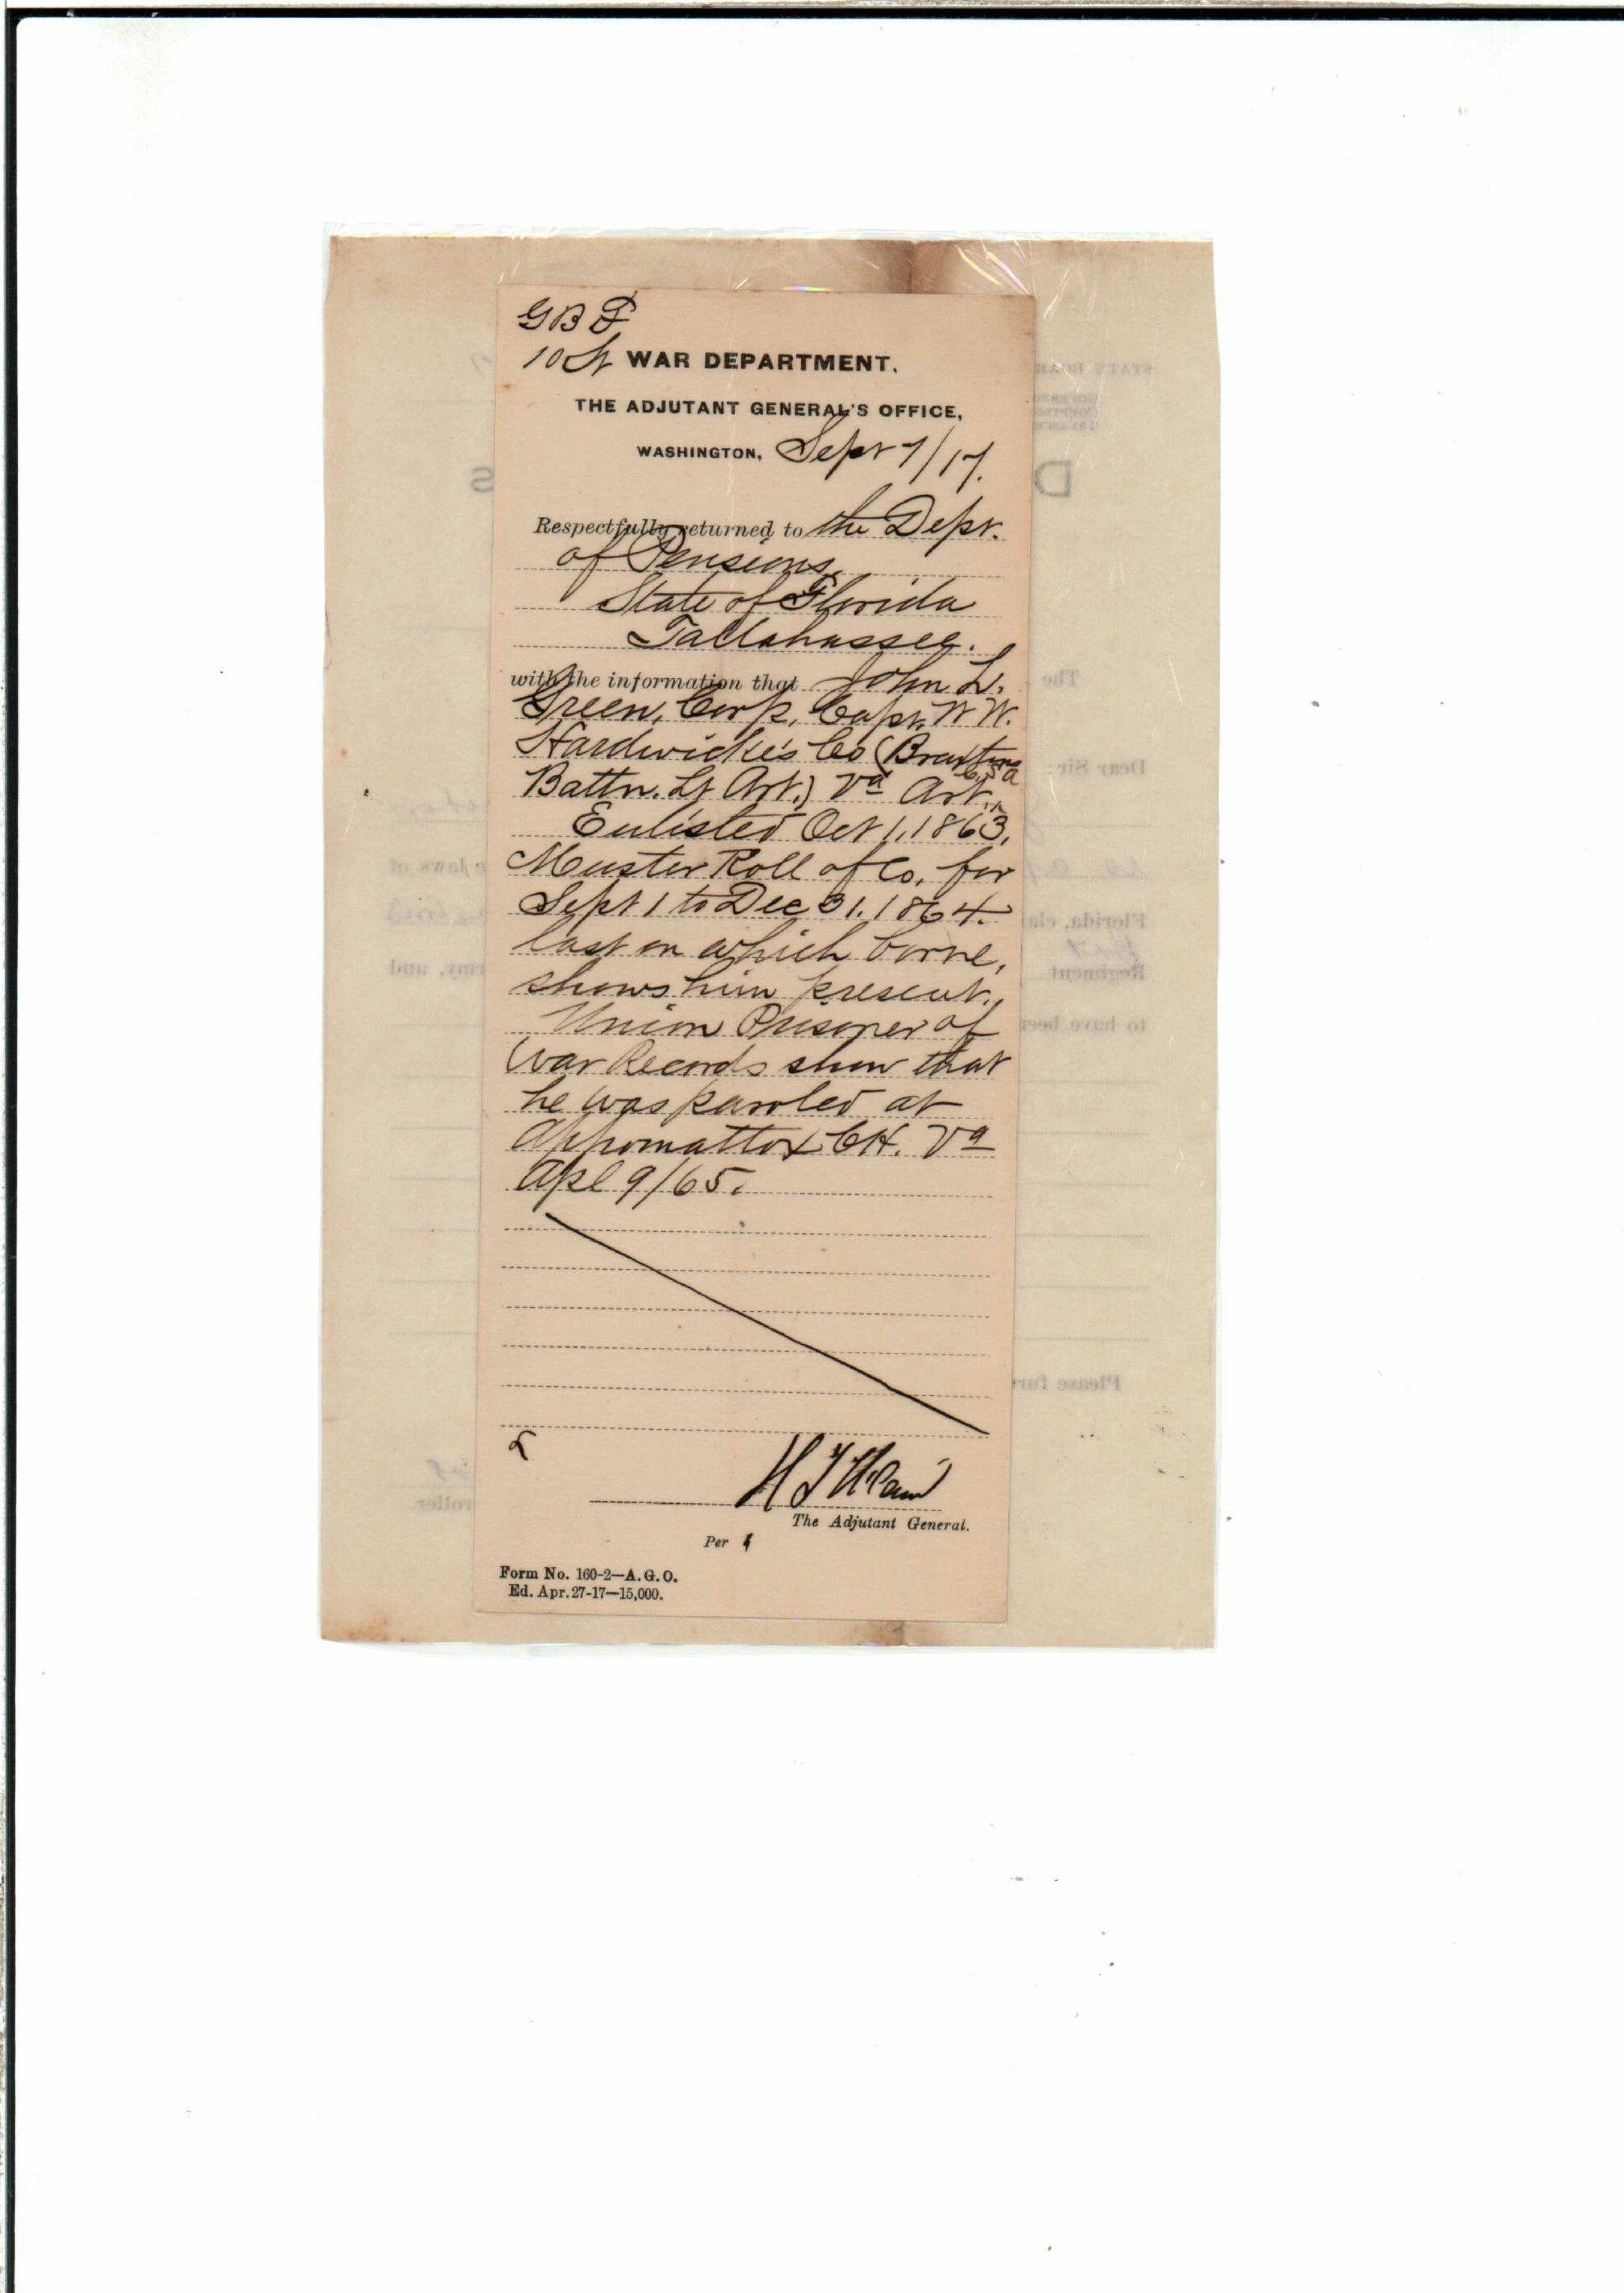 GBF
10 St WAR DEPARTMENT.
THE ADJUTANT GENERAL'S OFFICE,
WASHINGTON, Sept 7/17.
Respectfully returned to the Dept.
of Pensions,
State of Florida
Tallahassee.
with the information that John L.
Green, Corp, Capt. W W.
Hardwicke's Co (Braxtons
Battn. Lt Art.) Va Art., C.S.A
Enlisted Oct 1, 1863,
Muster Roll of Co, for
Sept 1 to Dec 31, 1864.
last on which borne,
shows him present.
Union Prisoner of
War Records show that
he was paroled at
Appomattox CH. Va
Apl 9/65.
The Adjutant General.
Per
Form No. 160-2—A.G.O.
Ed. Apr. 27-17—15,000.
STATE BOAR
D
S
The
Dear Sir:
e laws of
Florida, cla
Regiment
rmy, and
to have been
Please fur
roller.